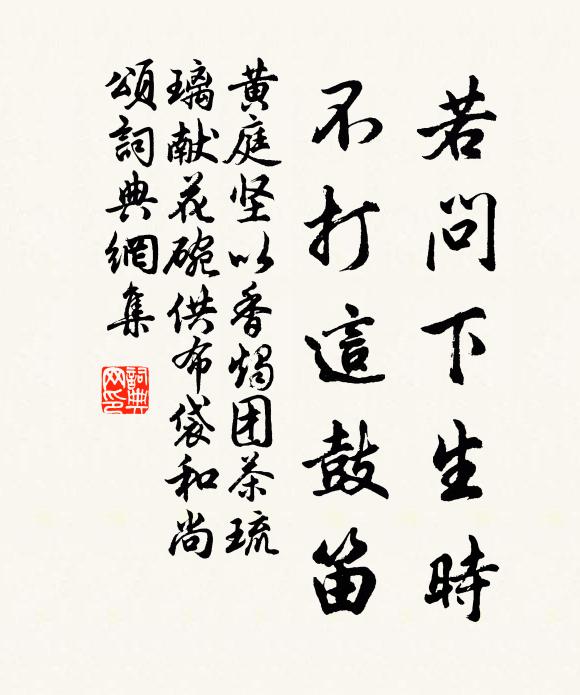 若問下生時
不打這鼓笛
黃庭坚以香燭团茶琉
璃献花碗供布袋和尚
頌詞典網集
詞典网印